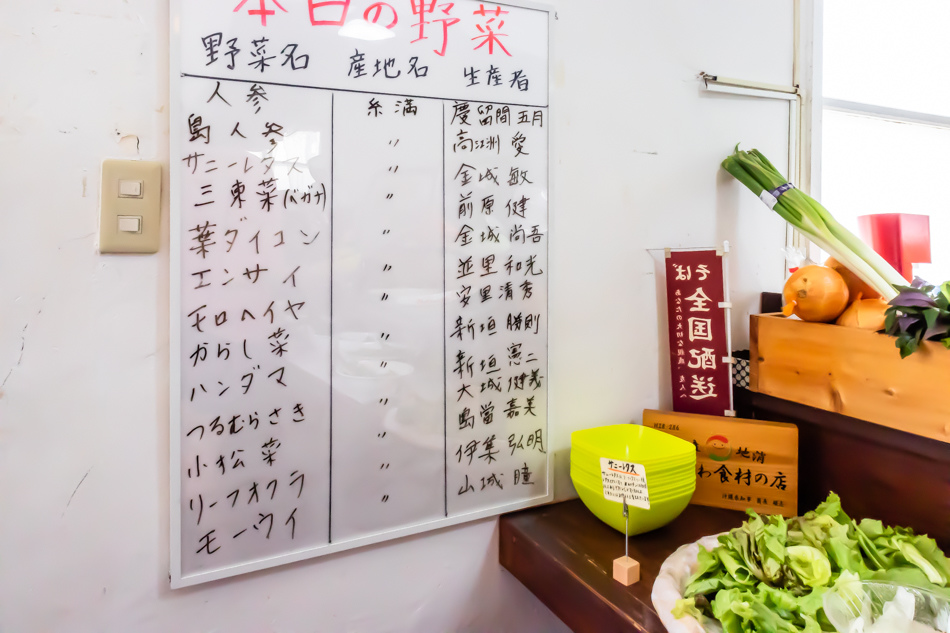 本日の野菜
野菜名 産地名 生産者
人参 糸満 慶留間 五月
島人参 〃 高江洲 愛
サニーレタス 〃 金城 敏
三東菜(バガナ) 〃 前原 健
葉ダイコン 〃 金城 尚吾
エンサイ 〃 並里 和光
モロヘイヤ 〃 安里 清秀
からし菜 〃 新垣 勝則
ハンダマ 〃 新垣 憲二
大城 健義
つるむらさき 〃 島當 嘉美
小松菜 〃 伊集 弘明
リーフオクラ 〃 山城 瞳
モーウイ
そば
全国配送
サニーレタス
地消
わ食材の店